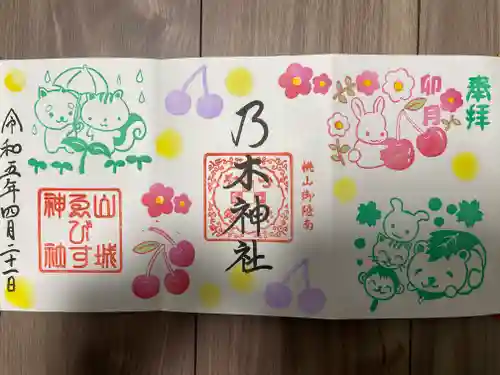 奉拝
卯月
桃山御陵南
乃木神社
山城
ゑびす
神社
令和五年四月二十一日